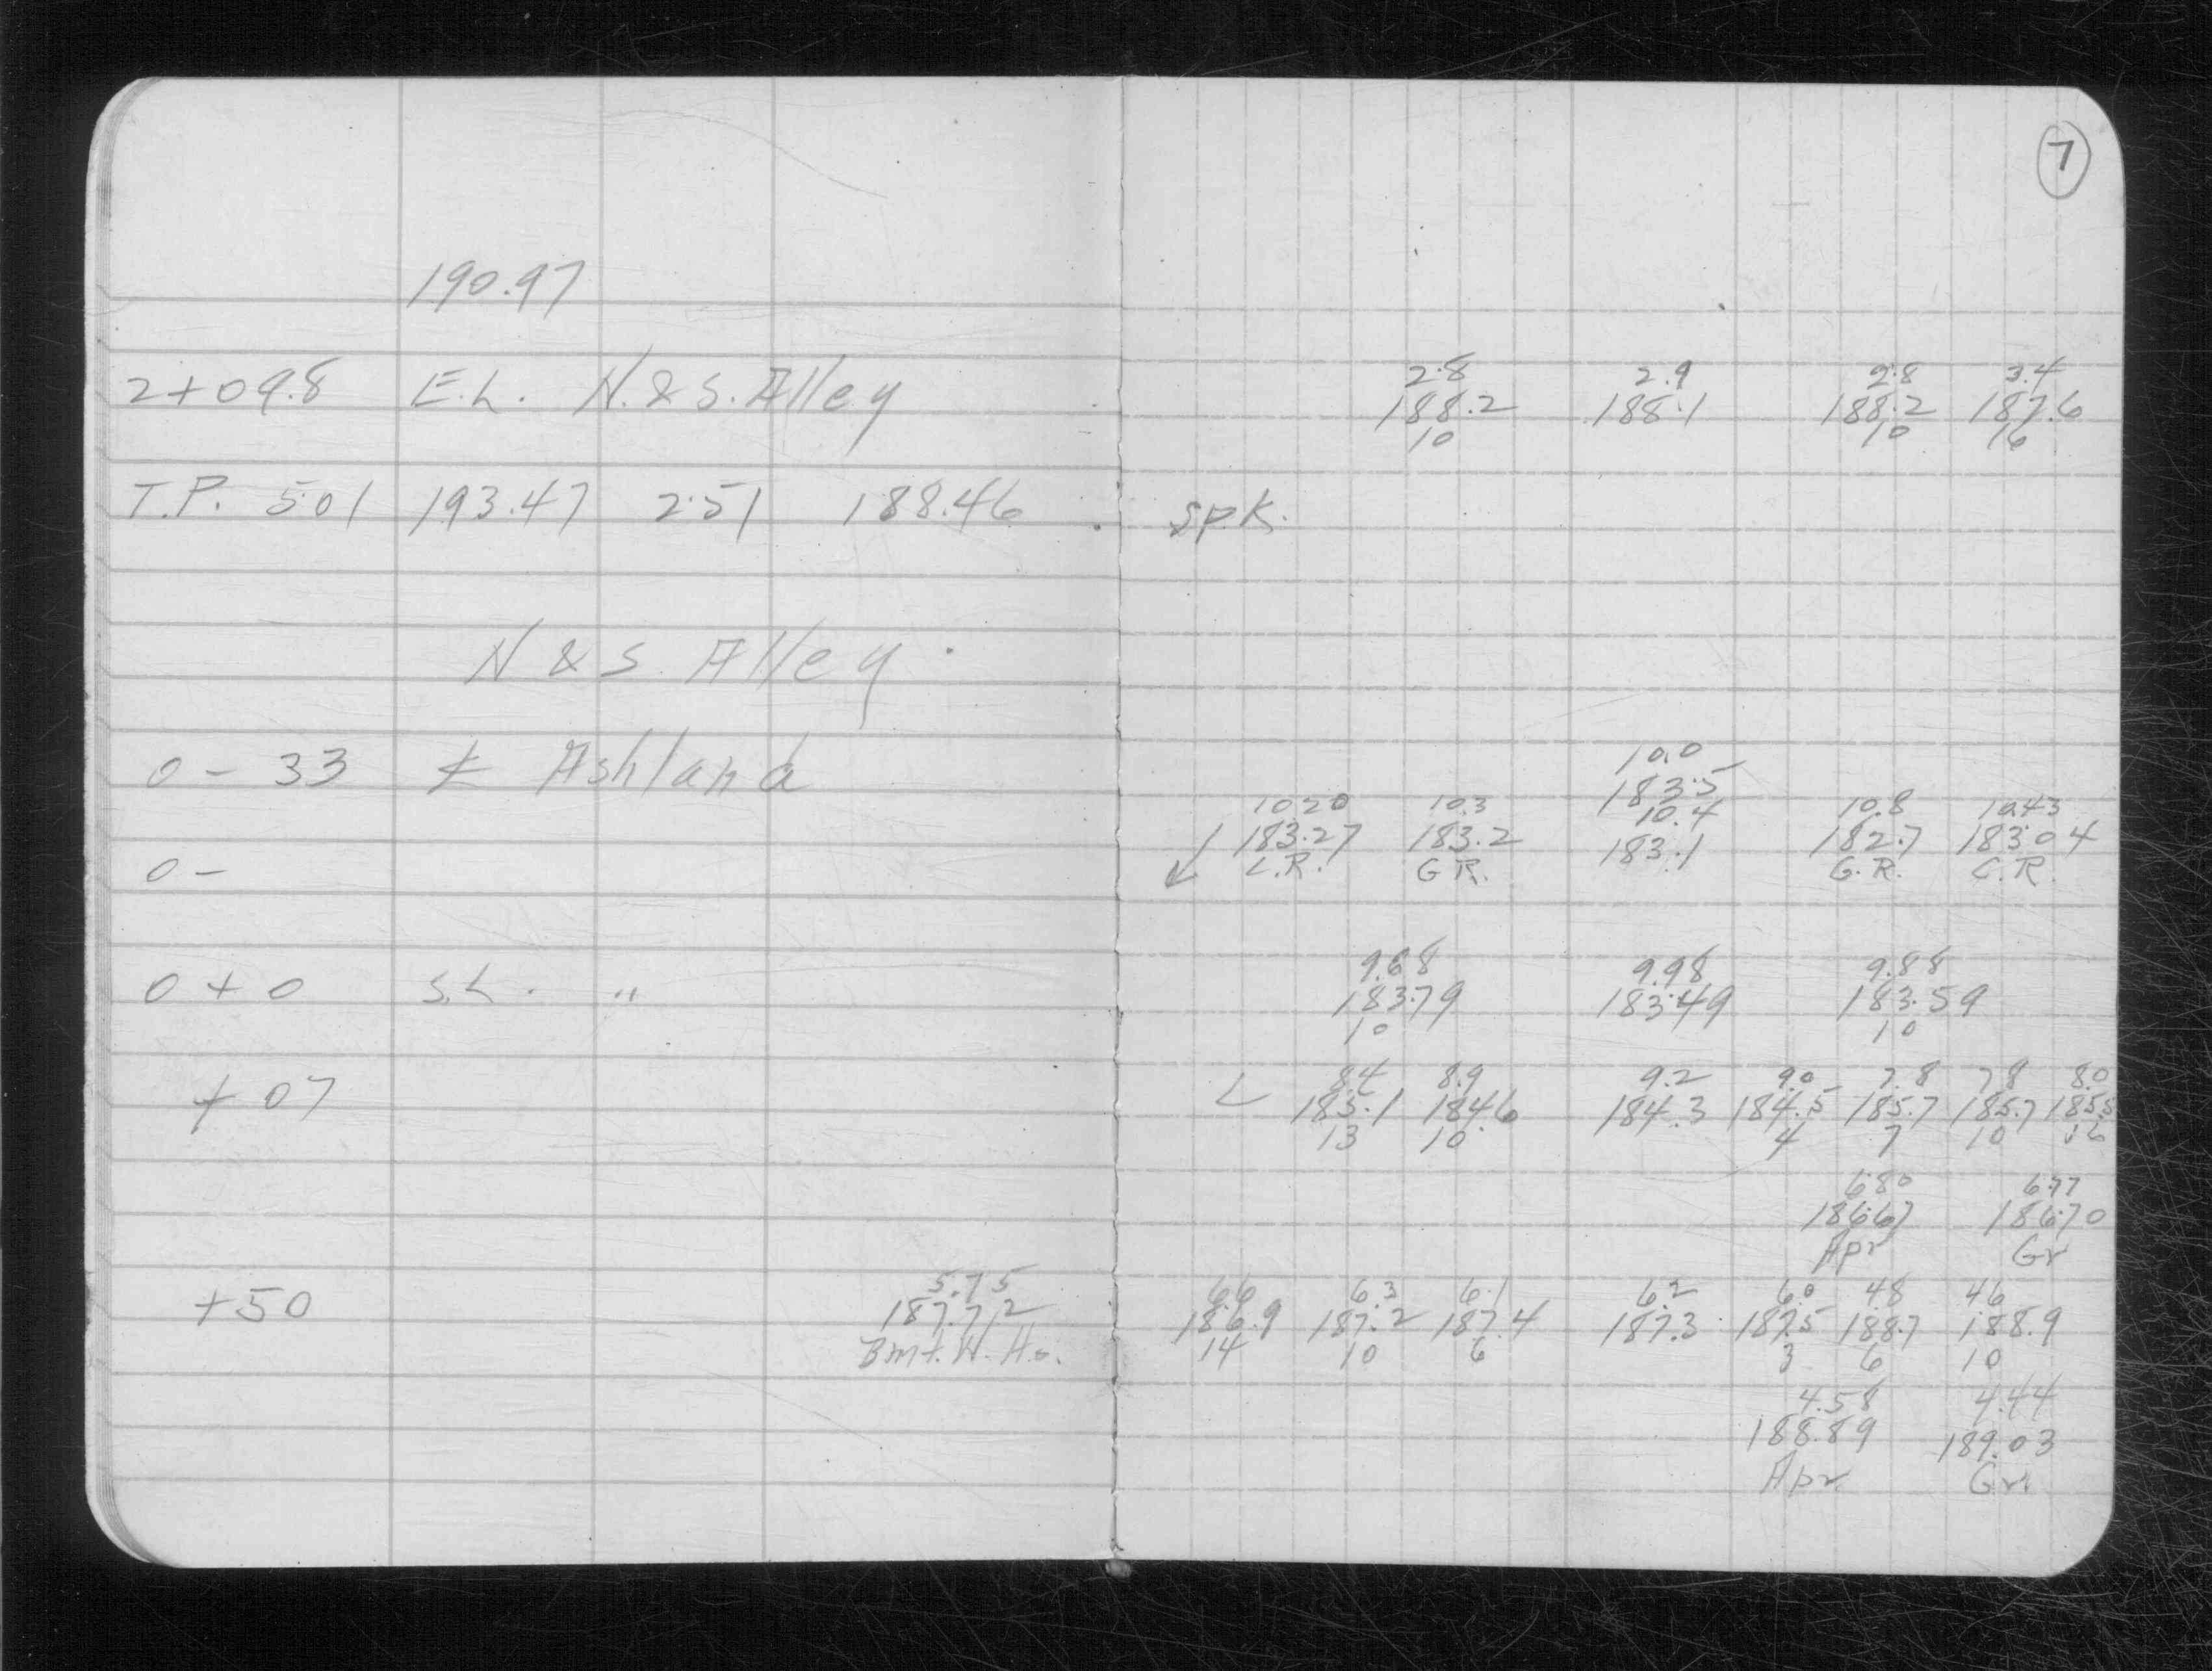 7
190.97
2+09.8 E.L. N.&S. Alley
2.8 2.9 2.8 3.4
188.2 188.1 188.2 187.6
10 10 16
T.P. 5.01 193.47 2.51 188.46 spk.
N & S. Alley
0-33 Ashland
10.0
183.5
10.20 10.3 10.4 10.8 10.43
183.27 183.2 183.1 182.7 183.04
C.R. G.R. G.R. C.R.
0-
9.68 9.98 9.88
0+0 S.L. " 183.79 183.49 183.59
10 10
8.4 8.9 9.2 9.0 7.8 7.8 8.0
+07 185.1 184.6 184.3 184.5 185.7 185.7 185.5
13 10 4 7 10 16
6.80 6.77
186.67 186.70
Apr Gr
5.75 6.6 6.3 6.1 6.2 6.0 4.8 4.6
+50 187.72 186.9 187.2 187.4 187.3 187.5 188.7 188.9
Bmt. W. Ho. 14 10 6 3 6 10
4.58 4.44
188.89 189.03
Apr. Gr.